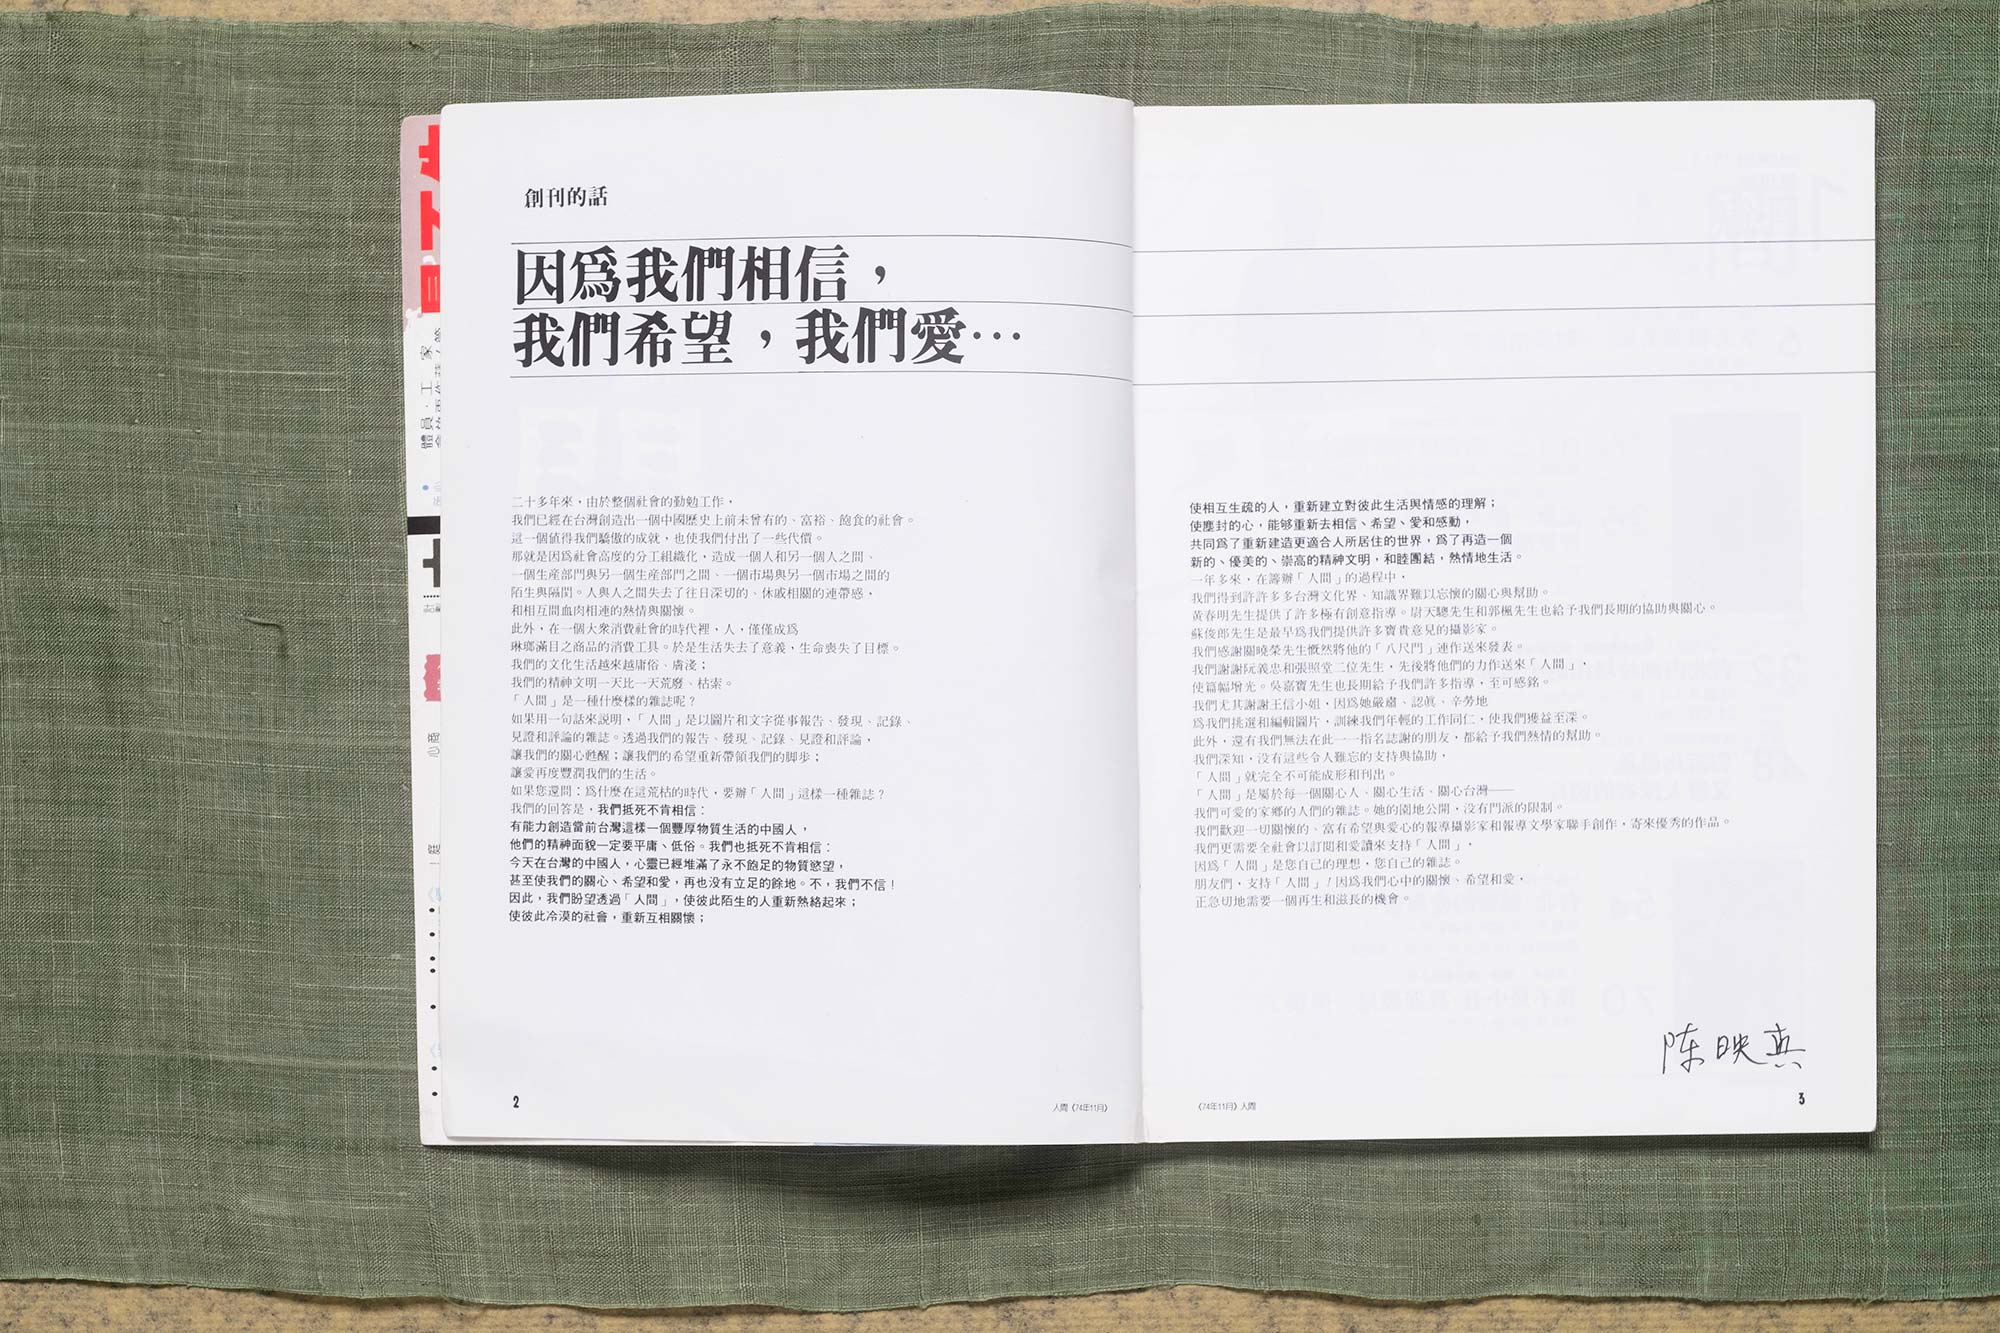 創刊的話
因爲我們相信，
我們希望，我們愛…
二十多年來，由於整個社會的勤勉工作，
我們已經在台灣創造出一個中國歷史上前未曾有的、富裕、飽食的社會。
這一個值得我們驕傲的成就，也使我們付出了一些代價。
那就是因爲社會高度的分工組織化，造成一個人和另一個人之間、
一個生産部門與另一個生産部門之間、一個市場與另一個市場之間的
陌生與隔閡。人與人之間失去了往日深切的、休戚相關的連帶感，
和相互間血肉相連的熱情與關懷。
此外，在一個大衆消費社會的時代裡，人，僅僅成爲
琳瑯滿目之商品的消費工具。於是生活失去了意義，生命喪失了目標。
我們的文化生活越來越庸俗、膚淺；
我們的精神文明一天比一天荒廢、枯索。
「人間」是一種什麼樣的雜誌呢？
如果用一句話來説明，「人間」是以圖片和文字從事報告、發現、記錄、
見證和評論的雜誌。透過我們的報告、發現、記錄、見證和評論，
讓我們的關心甦醒；讓我們的希望重新帶領我們的脚步；
讓愛再度豐潤我們的生活。
如果您還問：爲什麼在這荒枯的時代，要辦「人間」這樣一種雜誌？
我們的回答是，我們抵死不肯相信：
有能力創造當前台灣這樣一個豐厚物質生活的中國人，
他們的精神面貌一定要平庸、低俗。我們也抵死不肯相信：
今天在台灣的中國人，心靈已經堆滿了永不飽足的物質慾望，
甚至使我們的關心、希望和愛，再也没有立足的餘地。不，我們不信！
因此，我們盼望透過「人間」，使彼此陌生的人重新熱絡起來；
使彼此冷漠的社會，重新互相關懷；
2
人間《74年11月》
使相互生疏的人，重新建立對彼此生活與情感的理解；
使塵封的心，能够重新去相信、希望、愛和感動，
共同爲了重新建造更適合人所居住的世界，爲了再造一個
新的、優美的、崇高的精神文明，和睦團結，熱情地生活。
一年多來，在籌辦「人間」的過程中，
我們得到許許多多台灣文化界、知識界難以忘懷的關心與幫助。
黃春明先生提供了許多極有創意指導。尉天驄先生和郭楓先生也給予我們長期的協助與關心。
蘇俊郎先生是最早爲我們提供許多寶貴意見的攝影家。
我們感謝關曉榮先生慨然將他的「八尺門」連作送來發表。
我們謝謝阮義忠和張照堂二位先生，先後將他們的力作送來「人間」，
使篇幅增光。吳嘉寶先生也長期給予我們許多指導，至可感銘。
我們尤其謝謝王信小姐，因爲她嚴肅、認眞、辛勞地
爲我們挑選和編輯圖片，訓練我們年輕的工作同仁，使我們獲益至深。
此外，還有我們無法在此一一指名誌謝的朋友，都給予我們熱情的幫助。
我們深知，没有這些令人難忘的支持與協助，
「人間」就完全不可能成形和刊出。
「人間」是屬於每一個關心人、關心生活、關心台灣——
我們可愛的家鄉的人們的雜誌。她的園地公開，没有門派的限制。
我們歡迎一切關懷的、富有希望與愛心的報導攝影家和報導文學家聯手創作，寄來優秀的作品。
我們更需要全社會以訂閲和愛讀來支持「人間」，
因爲「人間」是您自己的理想，您自己的雜誌。
朋友們，支持「人間」！因爲我們心中的關懷、希望和愛，
正急切地需要一個再生和滋長的機會。
陈映真
《74年11月》人間
3